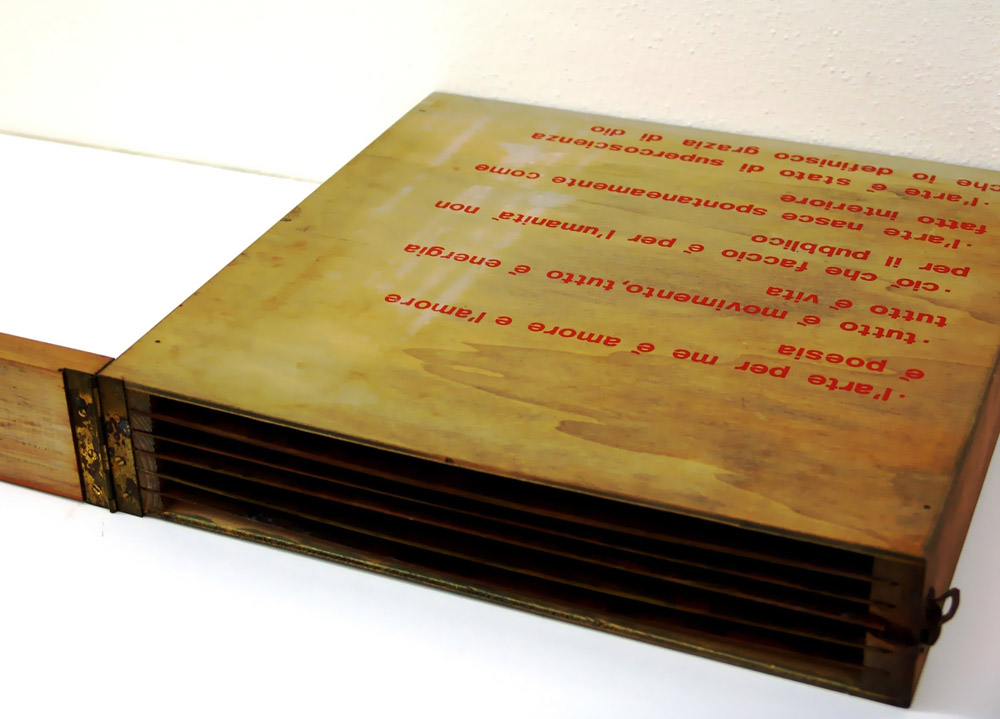 ·l'arte per me é amore e l'amore
é poesia
·tutto é movimento, tutto é energia
tutto é vita
·ció che faccio é per l'umanitá non
per il pubblico
·l'arte nasce spontaneamente come
fatto interiore
·l'arte é stato di supercoscienza
che io definisco grazia di dio